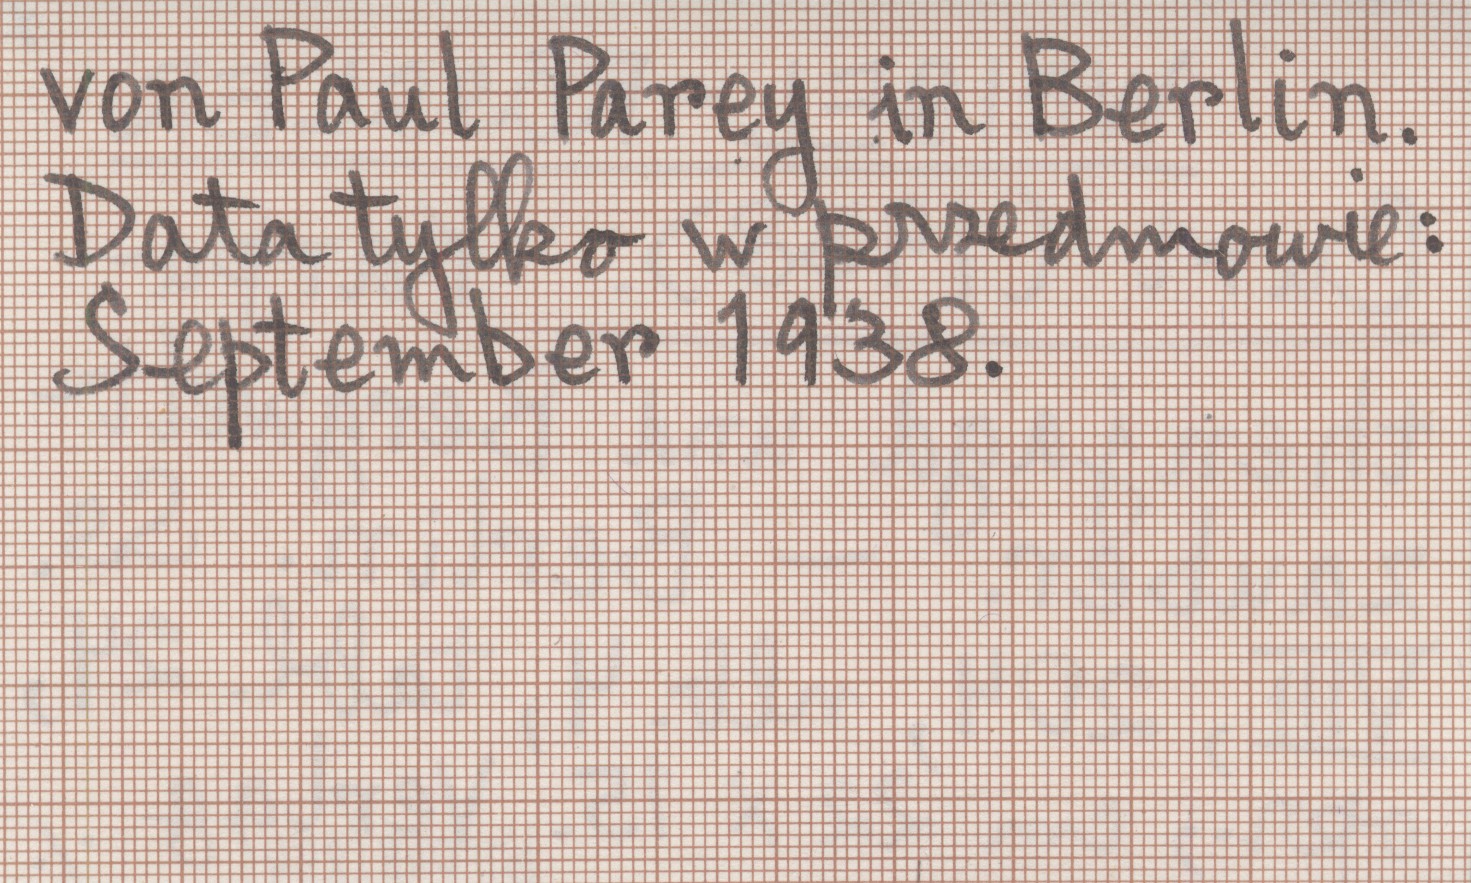 von Paul Parey in Berlin.
Data tylko w przedmowie:
September 1938.